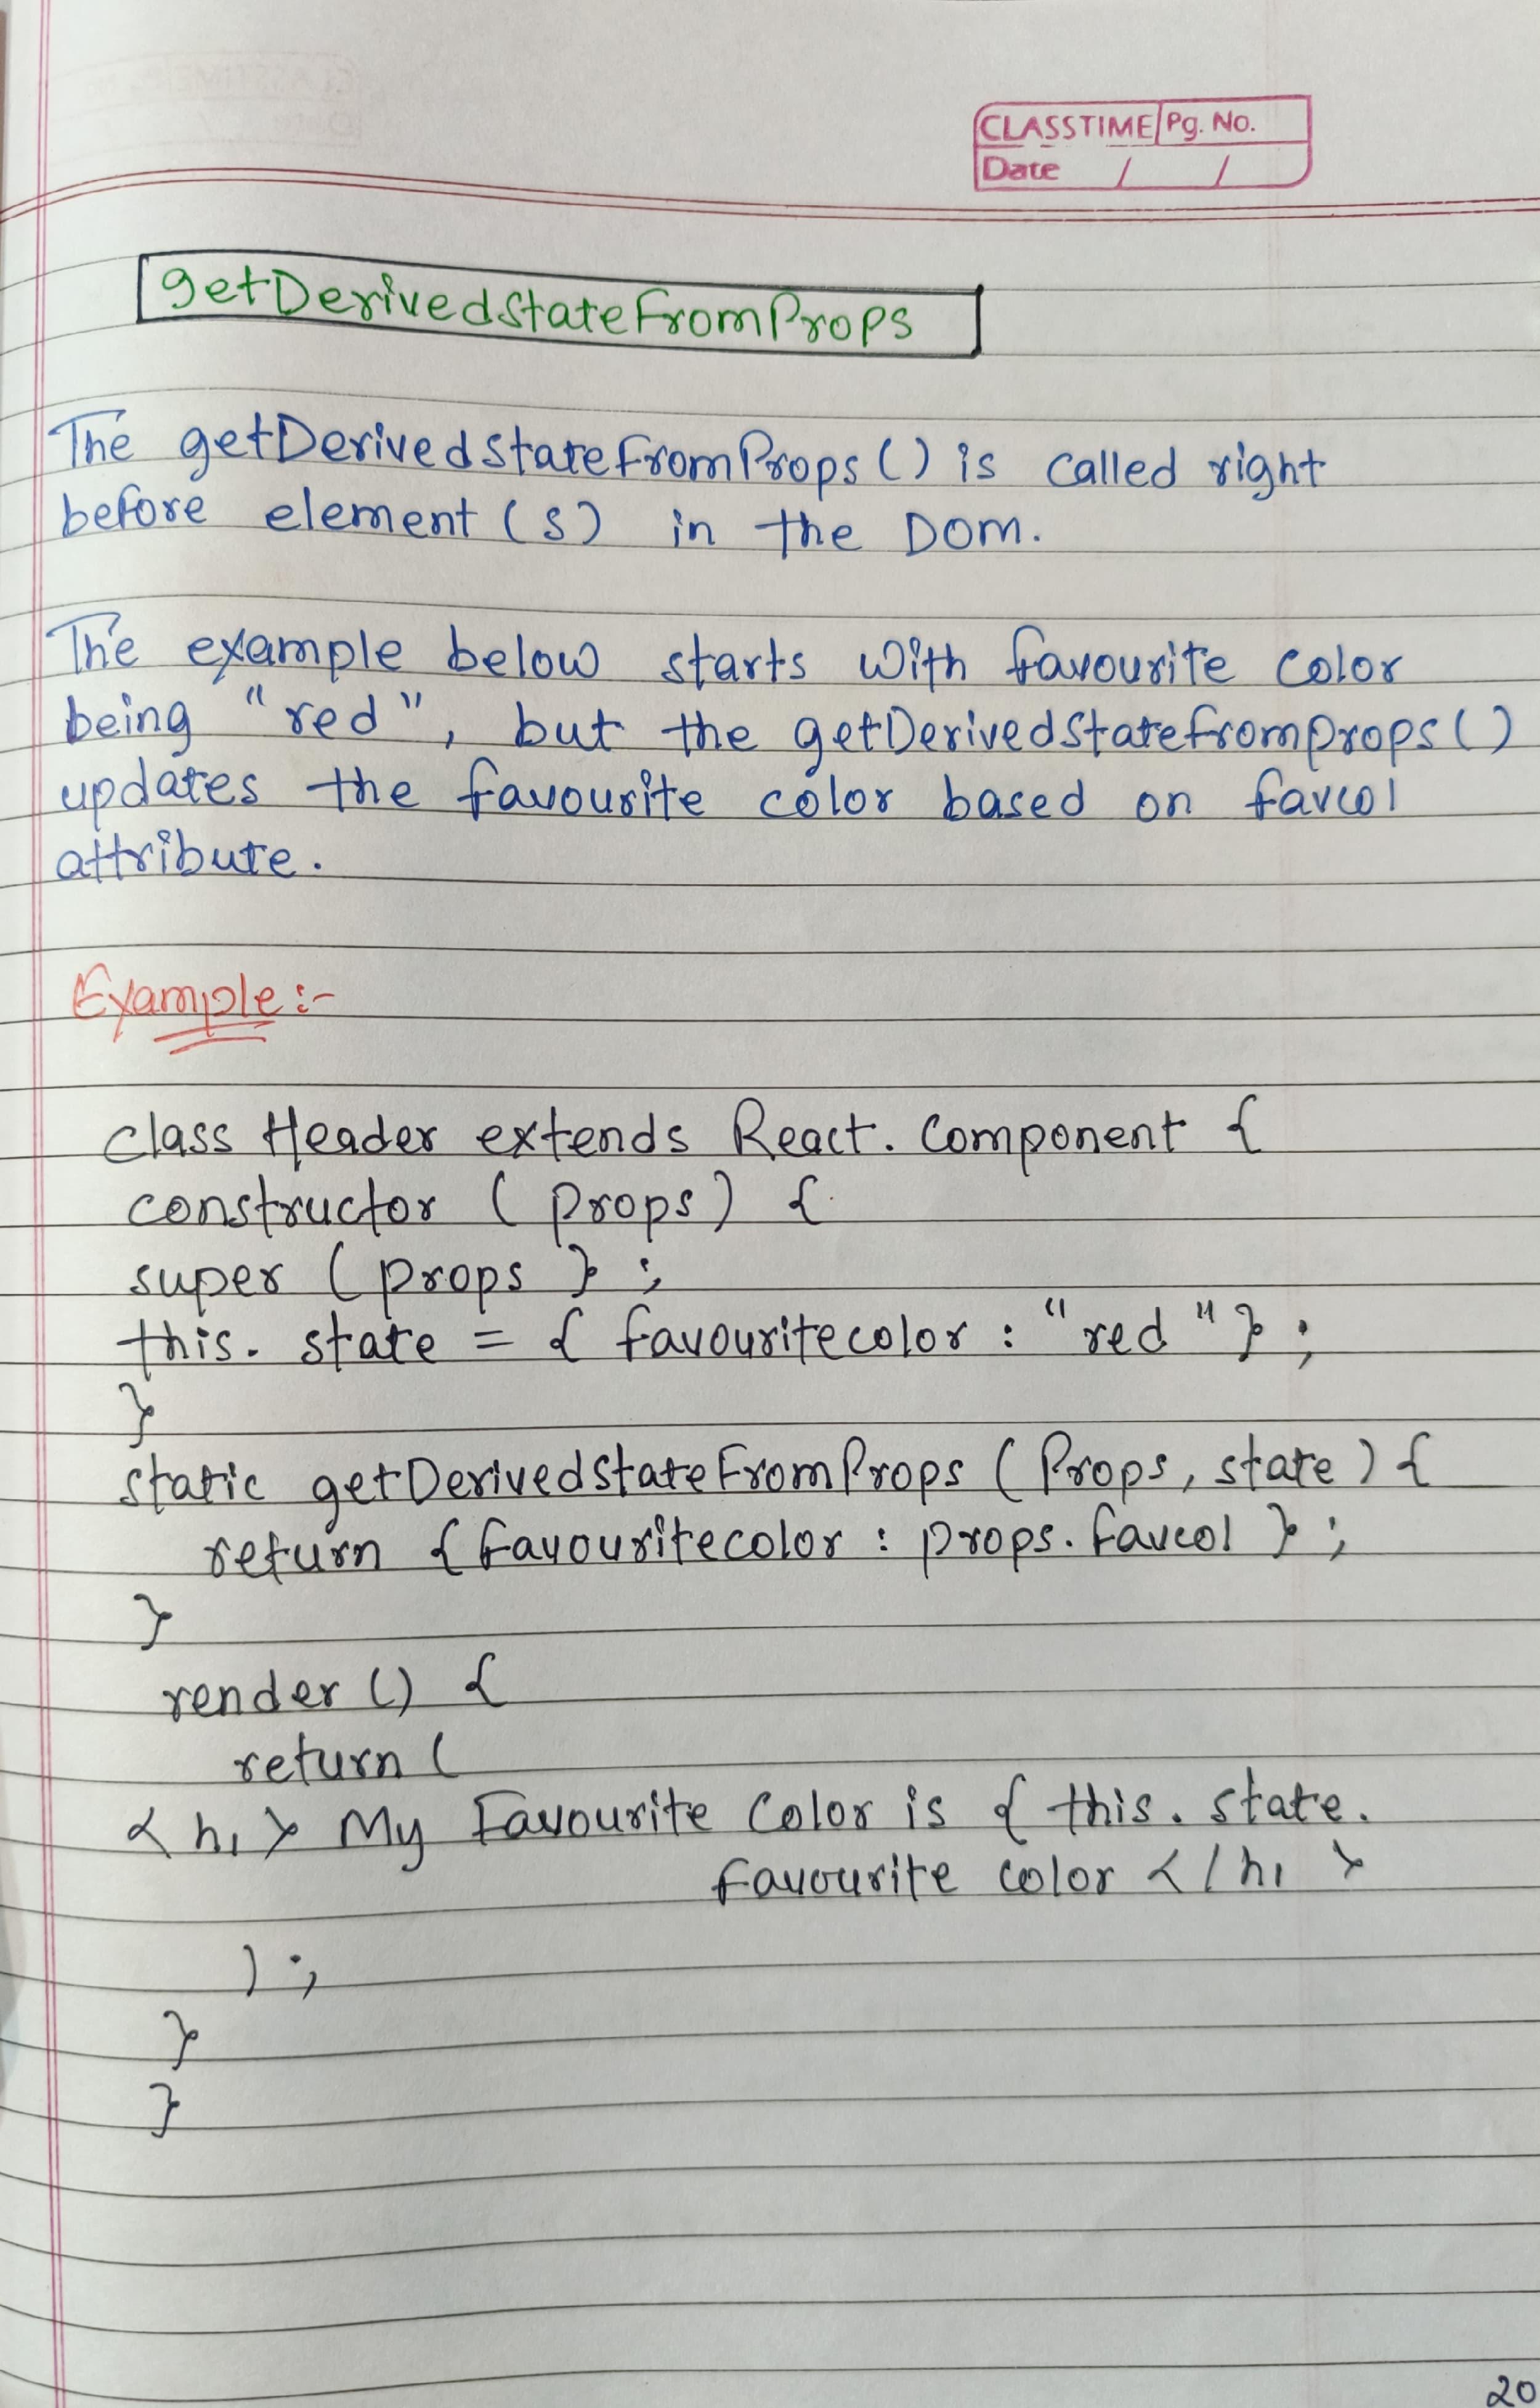 CLASSTIME Pg. No.
Date / /
getDerivedstateFromProps
The getDerivedstateFromProps () is called right
before element (s) in the DOM.
The example below starts with favourite color
being "red", but the getDerivedstatefromprops ()
updates the favourite color based on favcol
attribute.
Example :-
class Header extends React. Component {
constructor ( props) {
super ( props } ;
this. state = { favouritecolor : "red" } ;
}
static getDerivedstateFromProps ( Props, state ) {
return { favouritecolor : props. favcol } ;
}
render () {
return (
< h1 > My Favourite Color is { this. state.
favourite color < / h1 >
) ;
}
}
20